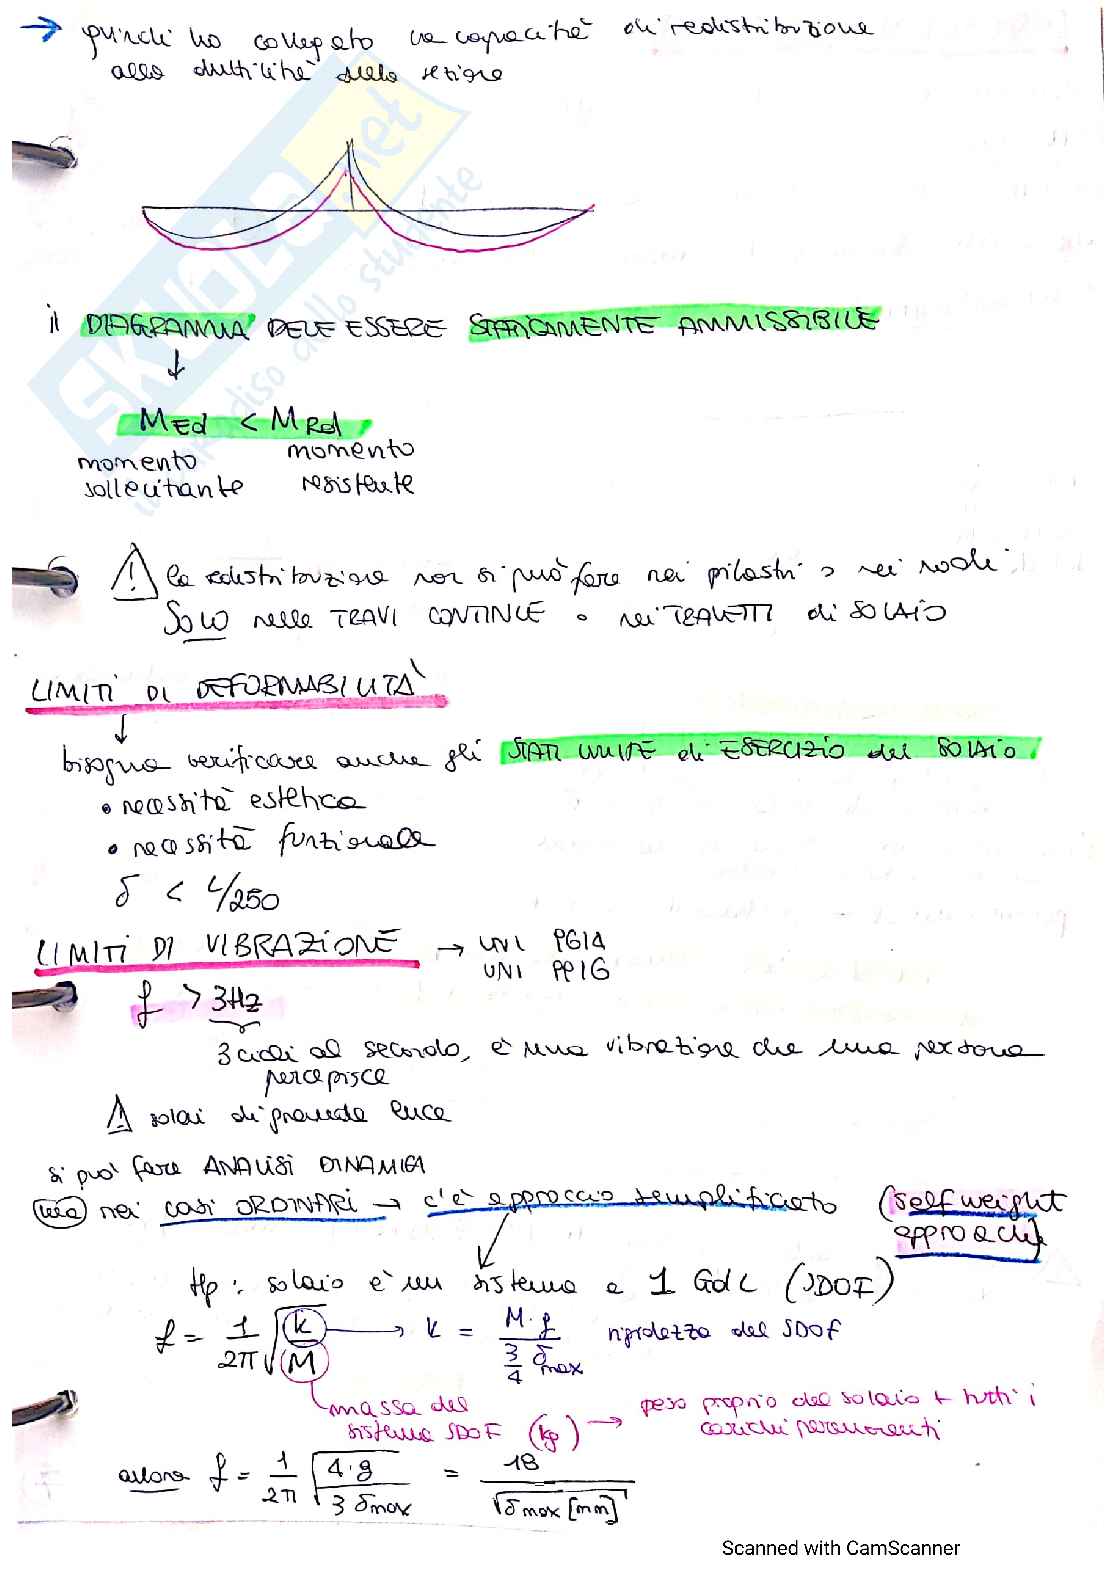 → quindi ho collegato la capacità di redistribuzione
alla duttilità della sezione
SKUOLA.net
il paradiso dello studente
il DIAGRAMMA DEVE ESSERE STATICAMENTE AMMISSIBILE
↓
MEd < MRd
momento momento
sollecitante resistente
⚠ la redistribuzione non si può fare nei pilastri o nei nodi.
SOLO nelle TRAVI CONTINUE o nei TRAVETTI di SOLAIO
LIMITI DI DEFORMABILITÀ
↓
bisogna verificare anche gli STATI LIMITE di ESERCIZIO del SOLAIO
• necessità estetica
• necessità funzionale
δ < L/250
LIMITI DI VIBRAZIONE → UNI
UNI
f > 3Hz
3 cicli al secondo, è una vibrazione che una persona
percepisce
⚠ solai di grande luce
si può fare ANALISI DINAMICA
ma nei casi ORDINARI → c'è approccio semplificato (self weight
approach)
Hp: solaio è un sistema a 1 GdL (SDOF)
f = 1/2π √(k/M) → k = M·g / (3/4 δmax) rigidezza del SDOF
massa del
sistema SDOF (kg) → peso proprio del solaio + tutti i
carichi permanenti
allora f = 1/2π √(4·g / 3 δmax) = 18 / √(δmax [mm])
Scanned with CamScanner